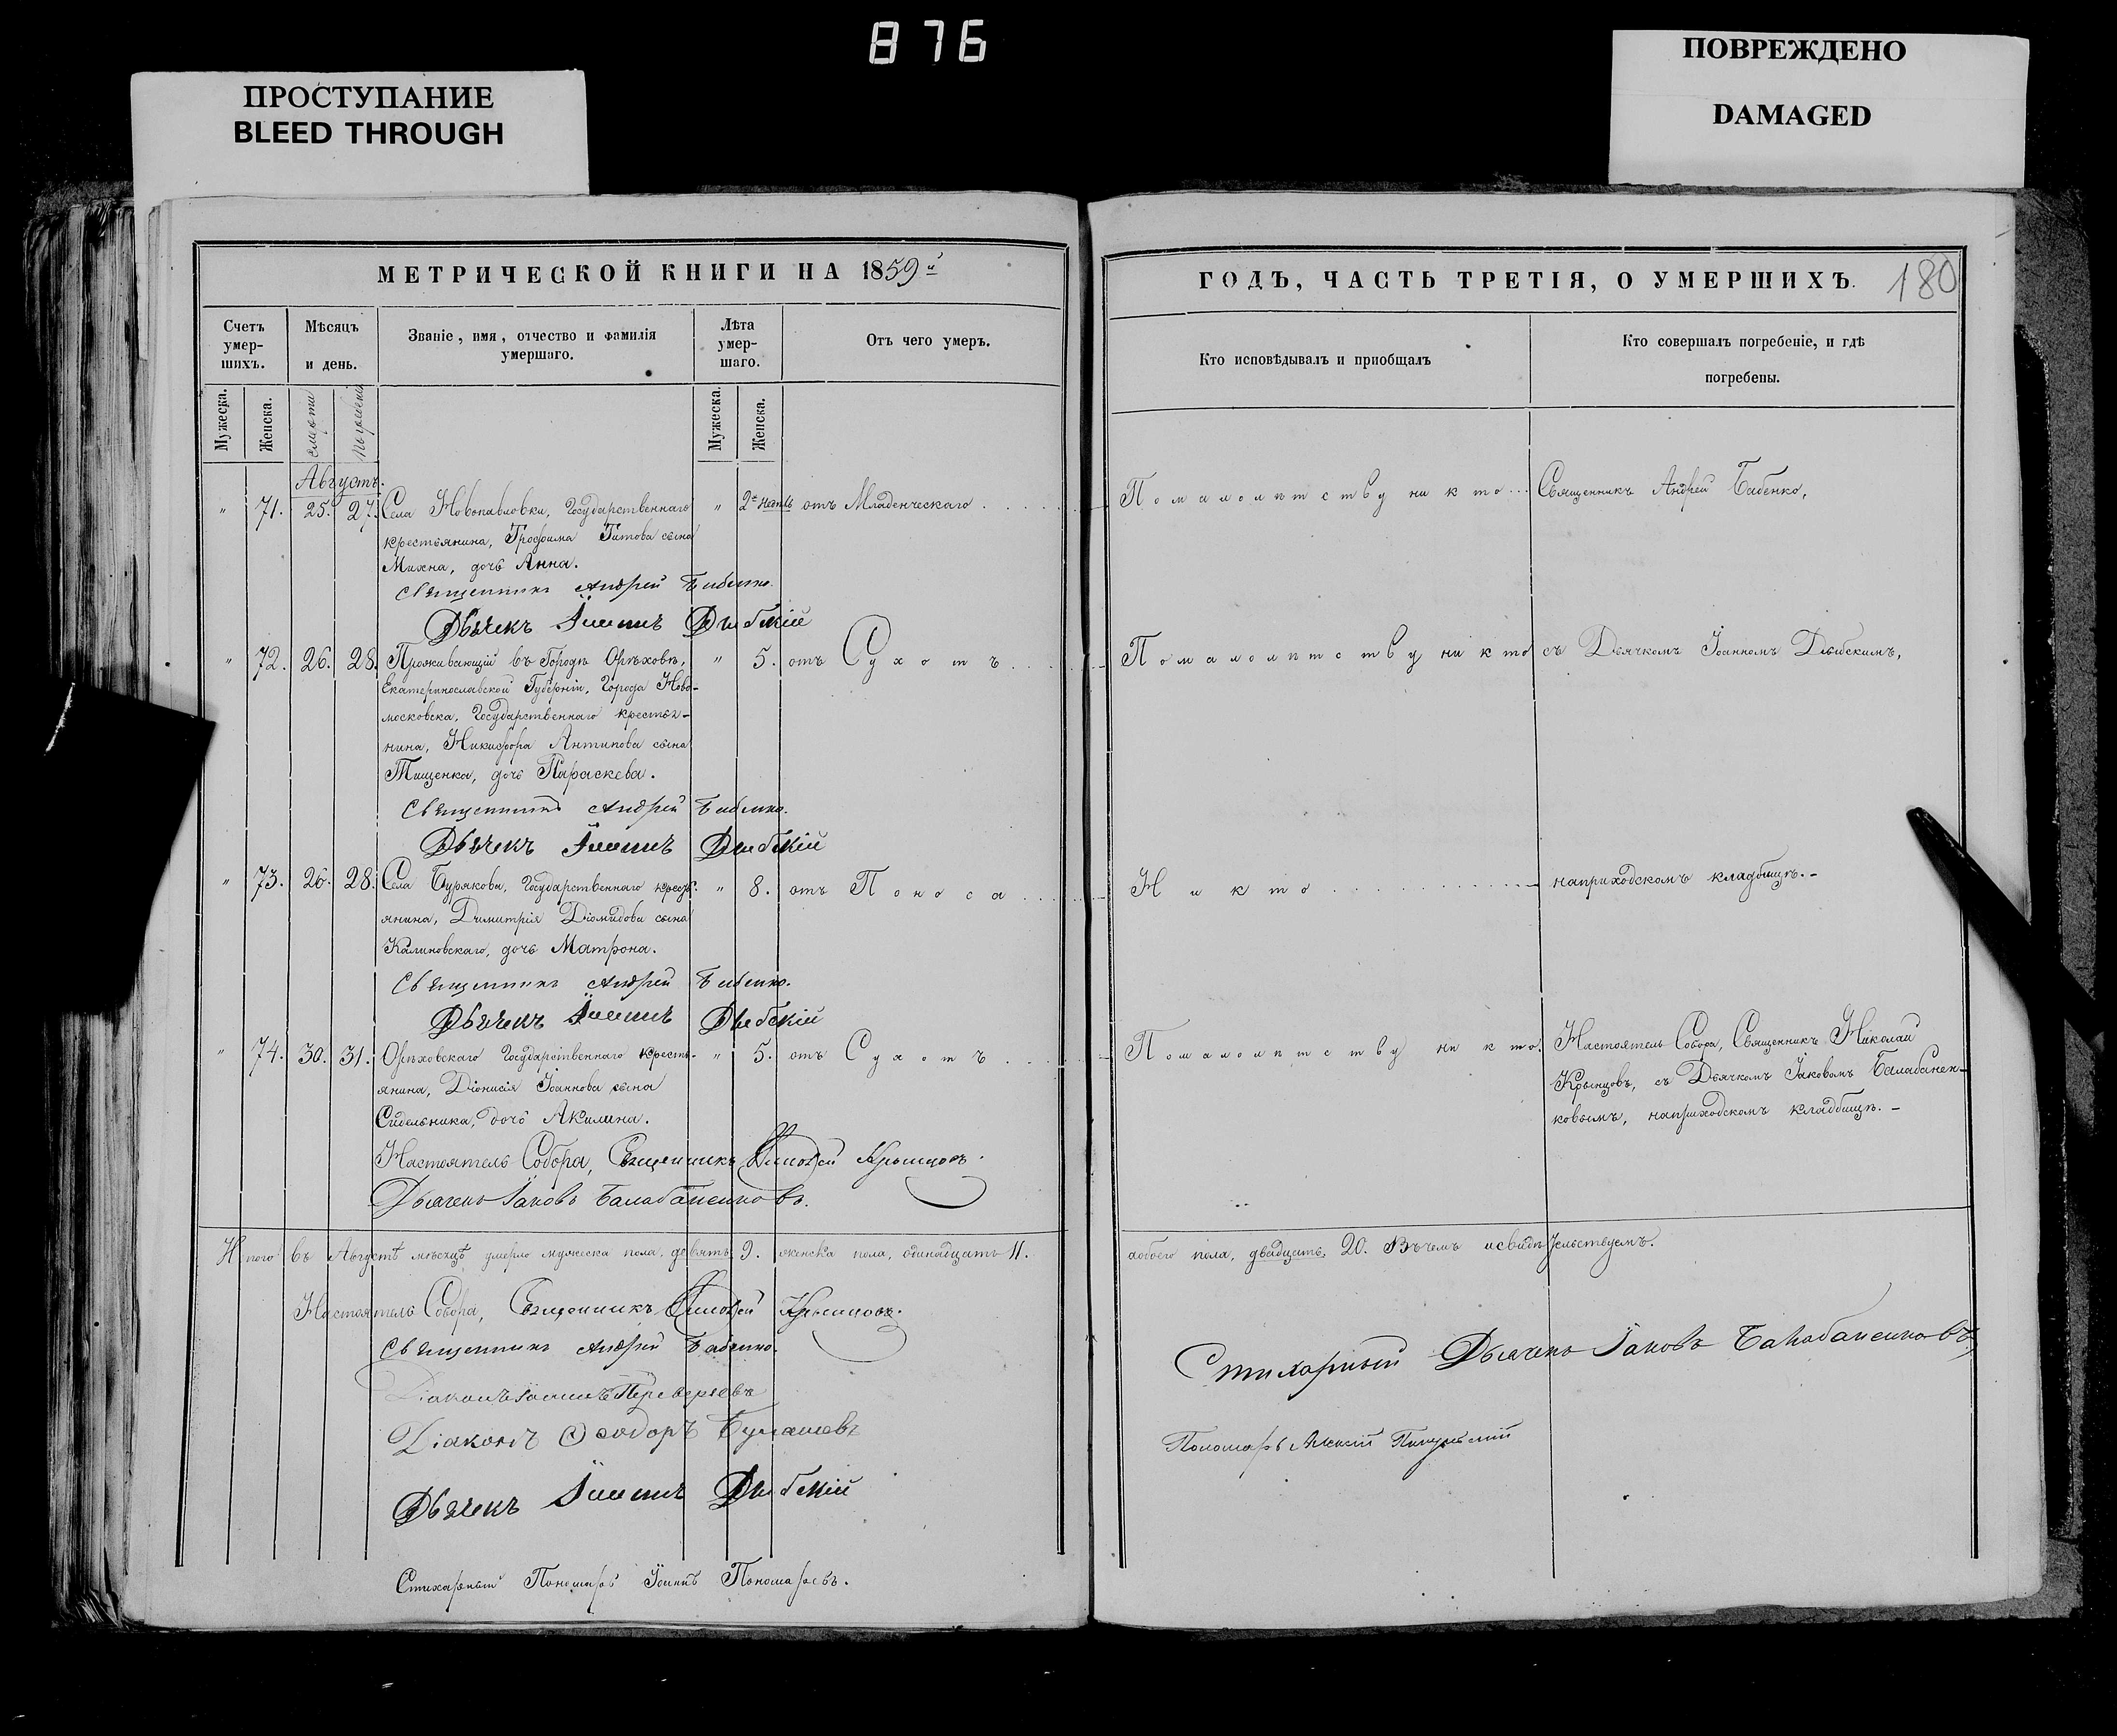 876
ПРОСТУПАНИЕ
BLEED THROUGH
ПОВРЕЖДЕНО
DAMAGED
МЕТРИЧЕСКОЙ КНИГИ НА 1859й
Счетъ умер-шихъ.
Мѣсяцъ и день.
Званіе, имя, отчество и фамилія умершаго.
Лѣта умер-шаго.
Отъ чего умеръ.
Мужеска.
Женска.
смерти
погребенія
Мужеска.
Женска.
Августъ.
" 71. 25. 27. Села Новопавловки, Государственнаго " 2х недѣль отъ Младенческаго
крестьянина, Трофима Титова сына
Михна, дочь Анна.
Священникъ Андрей Бабенко.
Дьячекъ Іоаннъ Дзюбскій
" 72. 26. 28. Проживающій въ Городѣ Орѣховѣ, " 5. отъ Сухотъ
Екатеринославской Губерніи, Города Ново-
московска, Государственнаго крестья-
нина, Никифора Антипова сына
Тищенка, дочь Параскева.
Священникъ Андрей Бабенко.
Дьячекъ Іоаннъ
" 73. 26. 28. Села Бурякова, Государственнаго крест- " 8. отъ Поноса
янина, Димитрія Діомидова сына
Калиновскаго, дочь Матрона.
Священникъ Андрей Бабенко.
Дьячекъ Іоаннъ
" 74. 30. 31. Орѣховскаго Государственнаго кресть- " 5. отъ Сухотъ
янина, Діонисія Іоаннова сына
Сидельника, дочь Акилина.
Настоятель Собора, Священникъ Николай Крынцовъ.
Дьячекъ Іаковъ Балабаненковъ.
Итого въ Августѣ мѣсяцѣ умерло мужеска пола, девять 9. женска пола, одинадцать 11.
Настоятель Собора, Священникъ Николай Крынцовъ.
Священникъ Андрей Бабенко.
Діаконъ Іоаннъ Переверзевъ
Діаконъ Ѳеодоръ
Дьячекъ Іоаннъ
Стихарный Пономарь Іоаннъ Пономаревъ.
ГОДЪ, ЧАСТЬ ТРЕТІЯ, О УМЕРШИХЪ.
180
Кто исповѣдывалъ и пріобщалъ
Кто совершалъ погребеніе, и гдѣ погребены.
По малолѣтству никто
Священникъ Андрей Бабенко,
По малолѣтству никто
съ Дьячкомъ Іоанномъ
Никто
наприходскомъ кладбищѣ.-
По малолѣтству никто.
Настоятель Собора, Священникъ Николай
Крынцовъ, съ Дьячкомъ Іаковомъ Балабанен-
ковымъ, наприходскомъ кладбищѣ.-
аобоего пола, двадцать 20. Въчемъ исвидѣтельствуемъ.
Стихарный Дьячекъ Іаковъ Балабаненковъ
Пономарь Алексій